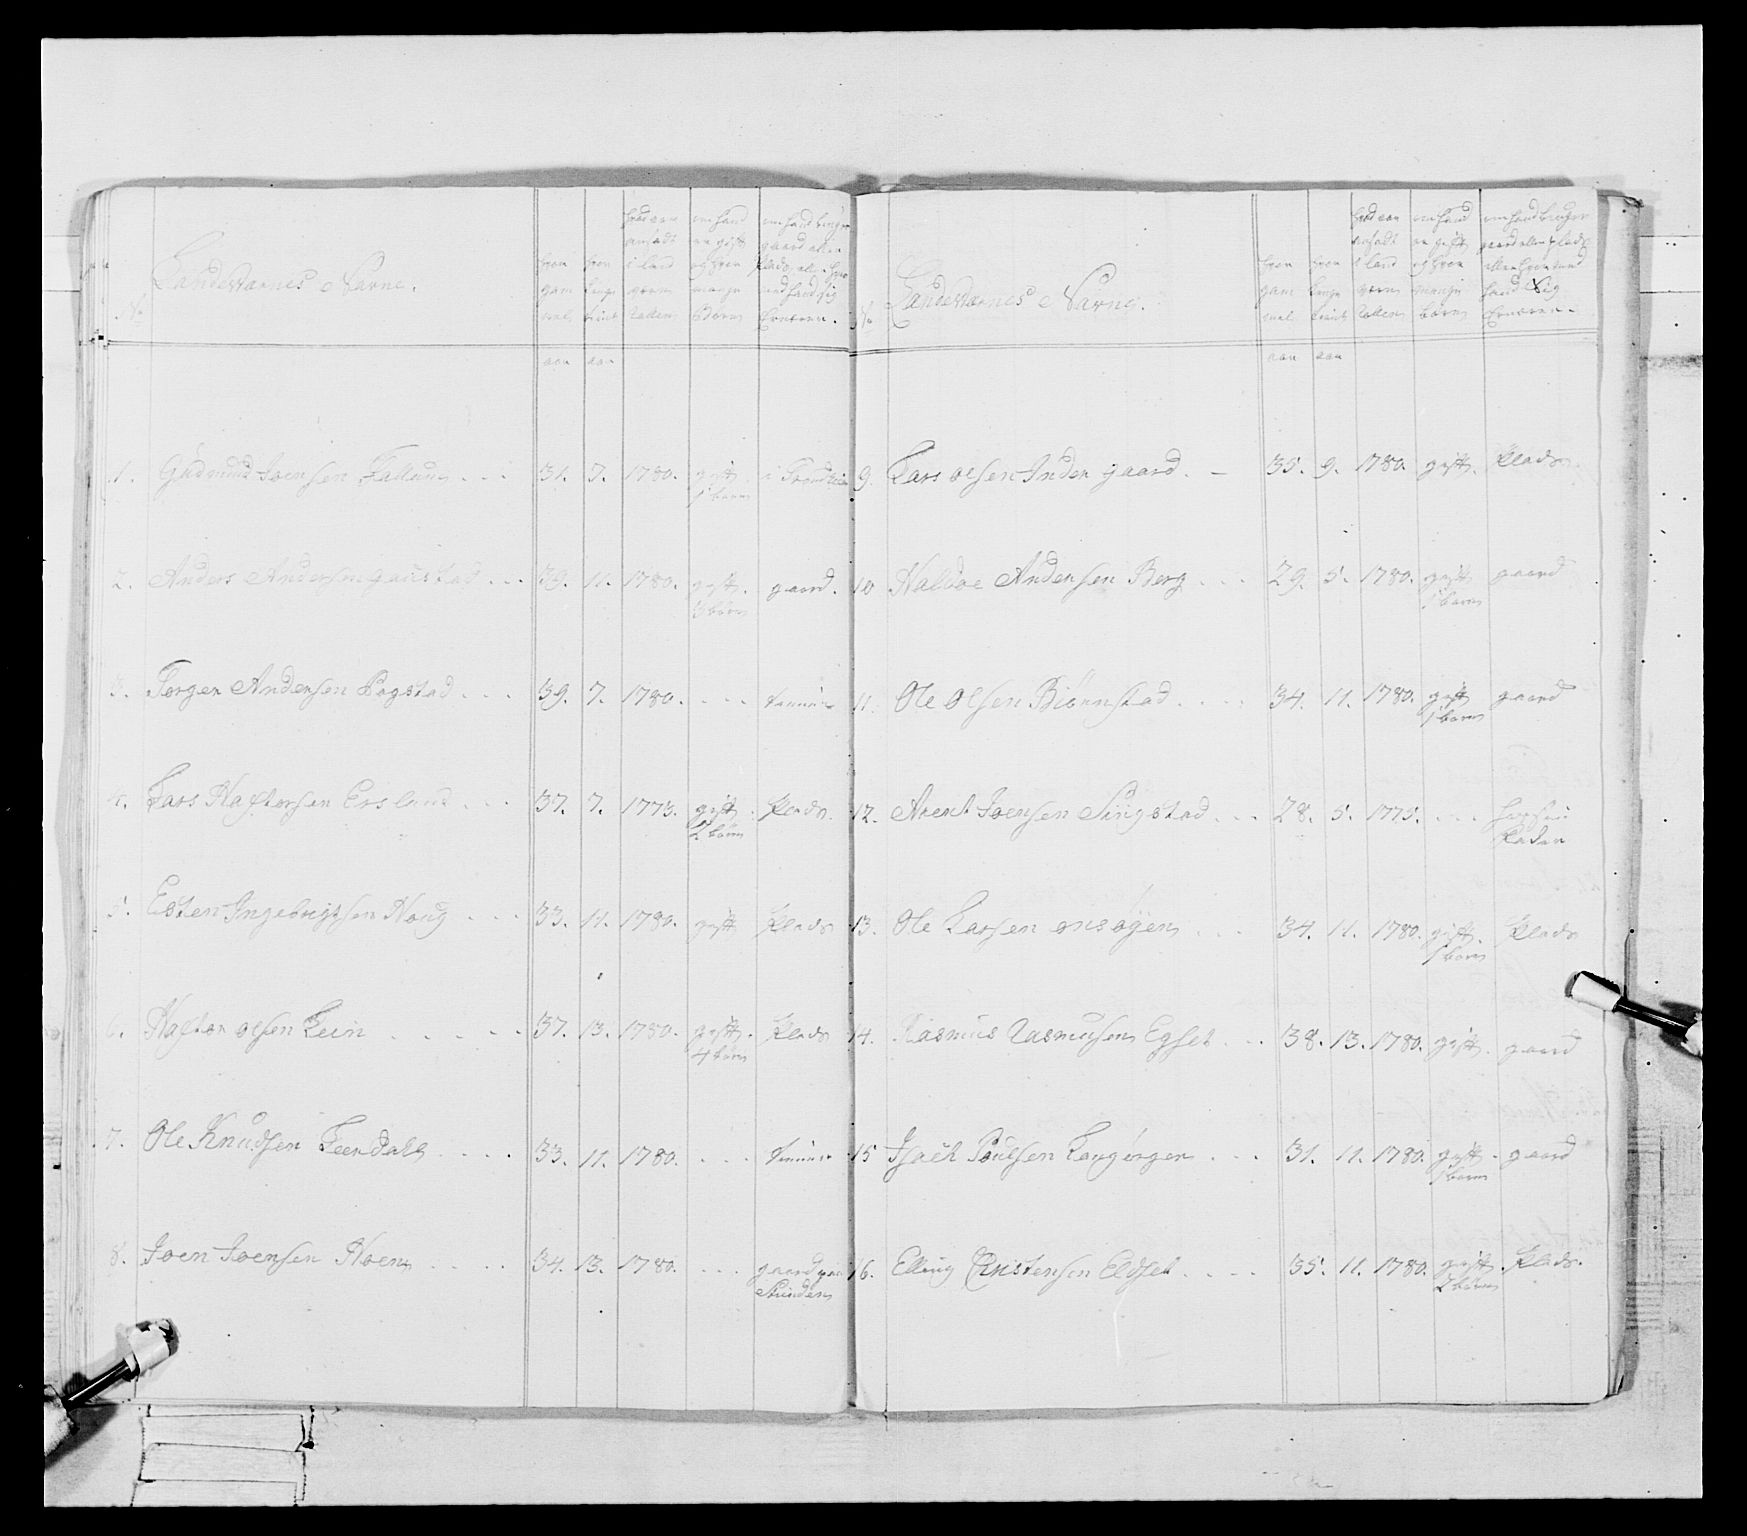 No
Landeværnes Navne.
hvor gam mel
hvor lenge tient
hvad aar ansadt i land værn Rullen
om hand er gift og hvor mange Børn
om hand bruger gaard eller Plads, eller hvor ved hand sig Ernærer.
aar aar
1. Gudmund Joensen 31. 7. 1780. gift. 1 barn
2. Anders Andersen gaustad 39. 11. 1780. gift. 3 børn gaard.
3. Torger Andersen Bogstad 39. 7. 1780. tienner
4. Lars Haftorsen Ersland 37. 7. 1773. gift. 2 børn Plads.
5. Esten Ingebrigtsen Houg 33. 11. 1780. gift Plads
6. Haftor olsen Lein 37. 13. 1780. gift. 4 børn Plads
7. Ole Knudsen 33. 11. 1780. tienner
8. Joen Joensen Moen 34. 13. 1780. gaard
No
Landeværnes Navne.
hvor gam mel
hvor lenge tient
hvad aar ansadt i land værn Rullen
om hand er gift og hvor mange børn
om hand bruger gaard eller plads eller hvor ved hand Sig Ernærer.
aar aar
9. Lars olsen Inder gaard. 35. 9. 1780 gift. Plads
10 Haldoe Andersen Berg 29. 5. 1780. gift 1 barn gaard
11. Ole olsen Biørnstad 34. 11. 1780. gift 1 barn gaard
12. Arent Joensen 28. 5. 1775. Fader
13. Ole Larsen onsøyen 34. 11. 1780. gift. 1 barn Plads
14. Rasmus Rasmusen Egset 38. 13. 1780. gift. gaard
15 Isach Poulsen Langørgen 31. 11. 1780. gift. 1 barn gaard
16. Elling Christensen Eldset 35. 11. 1780. gift. 2 børn Plads.